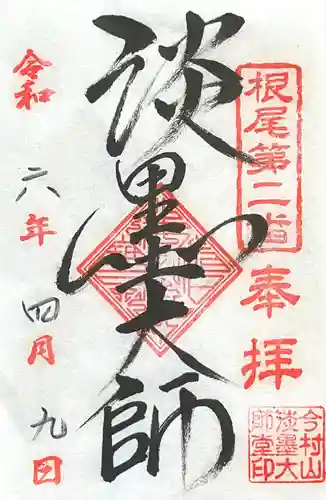 根尾第二番
奉拝
談墨大師
令和六年四月九日
今村山
淡墨大
師堂印